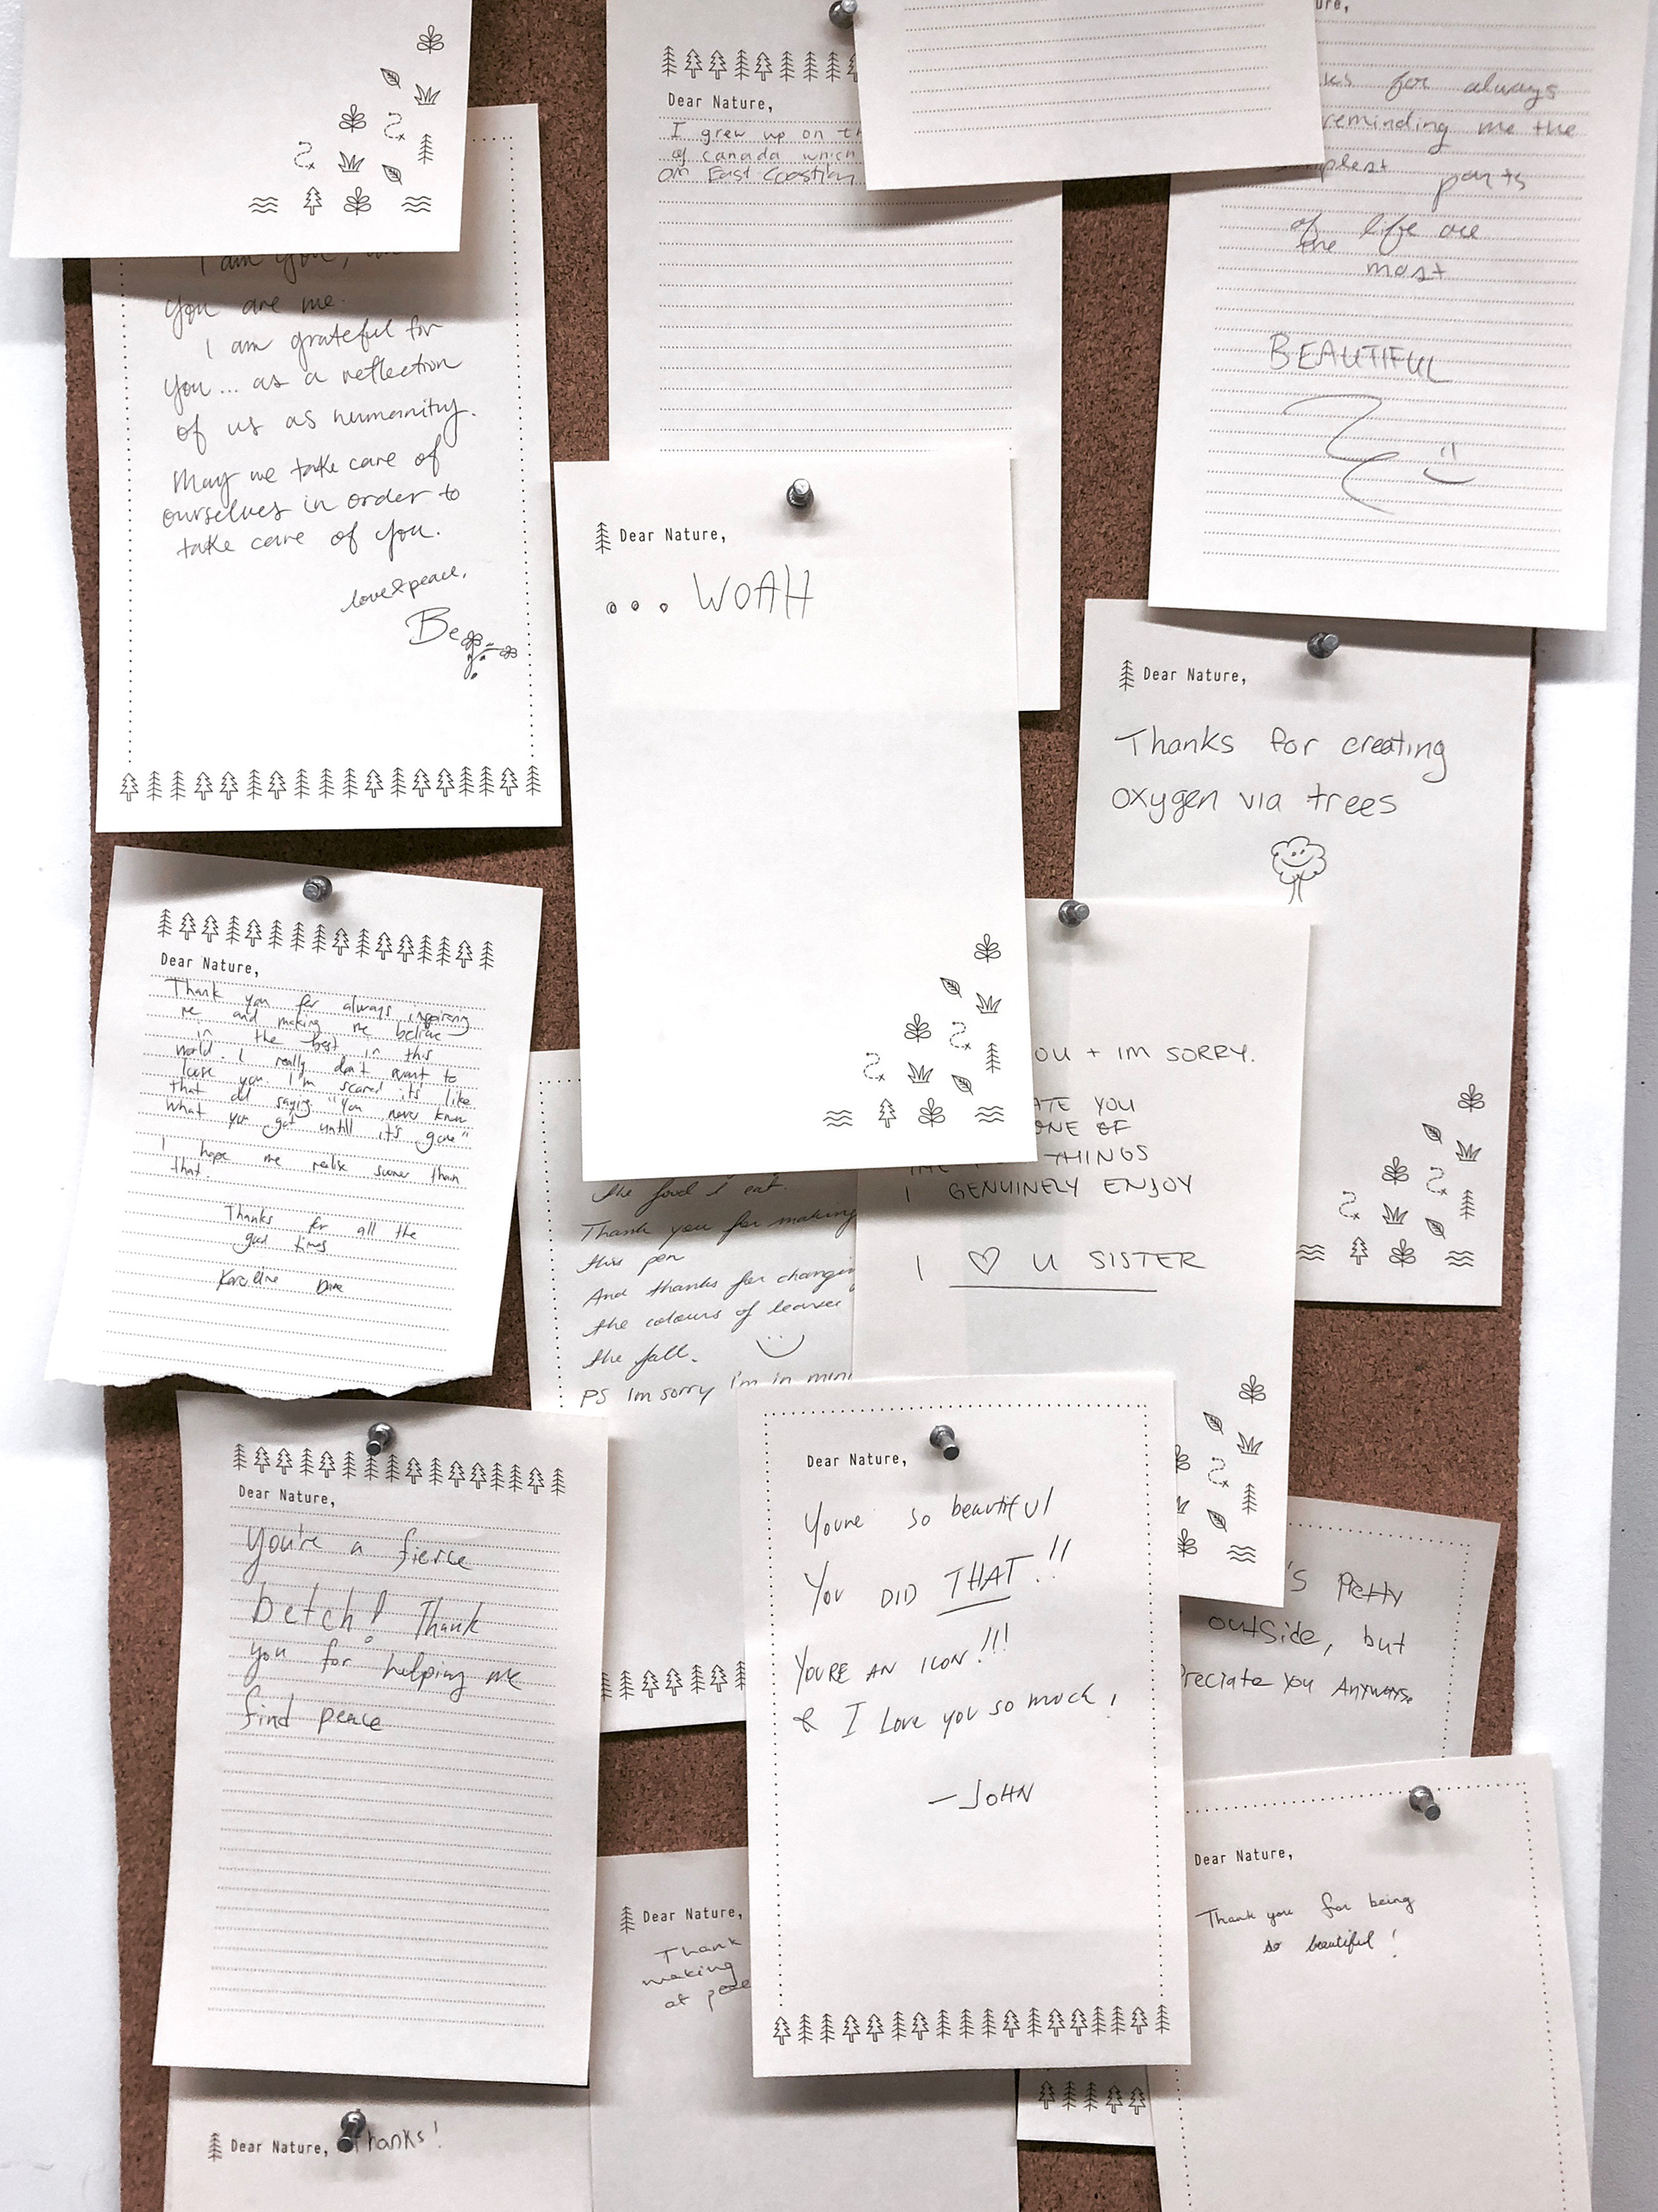 I am you,
You are me.
I am grateful for
you... as a reflection
of us as humanity.
May we take care of
ourselves in order to
take care of you.
love & peace,
Be
Dear Nature,
I grew up on th
of canada which
an East Coastian
ure,
ks for always
reminding me the
mplest parts
of life are
the most
BEAUTIFUL
Dear Nature,
... WOAH
Dear Nature,
Thanks for creating
oxygen via trees
Dear Nature,
Thank you for always inspiring
me and making me believe
in the best in this
world. I really don't want to
loose you. I'm scared it's like
that old saying "you never know
what you got untill it's gone"
I hope we realise sooner than
that.
Thanks for all the
good times
Karoline
OU + IM SORRY.
ATE YOU
ONE OF
THINGS
I GENUINELY ENJOY
I ♡ U SISTER
the food I eat.
Thank you for making
this pen
And thanks for changing
the colours of leaves
the fall.
PS Im sorry I'm in mini
Dear Nature,
You're a fierce
betch! Thank
you for helping me
find peace
Dear Nature,
Youre so beautiful
You DID THAT!!
YOURE AN ICON!!!
& I Love you so much!
—JOHN
's Pretty
outside, but
preciate you Anyways.
Dear Nature,
Thank
making
at peace
Dear Nature,
Thank you for being
so beautiful!
Dear Nature, Thanks!